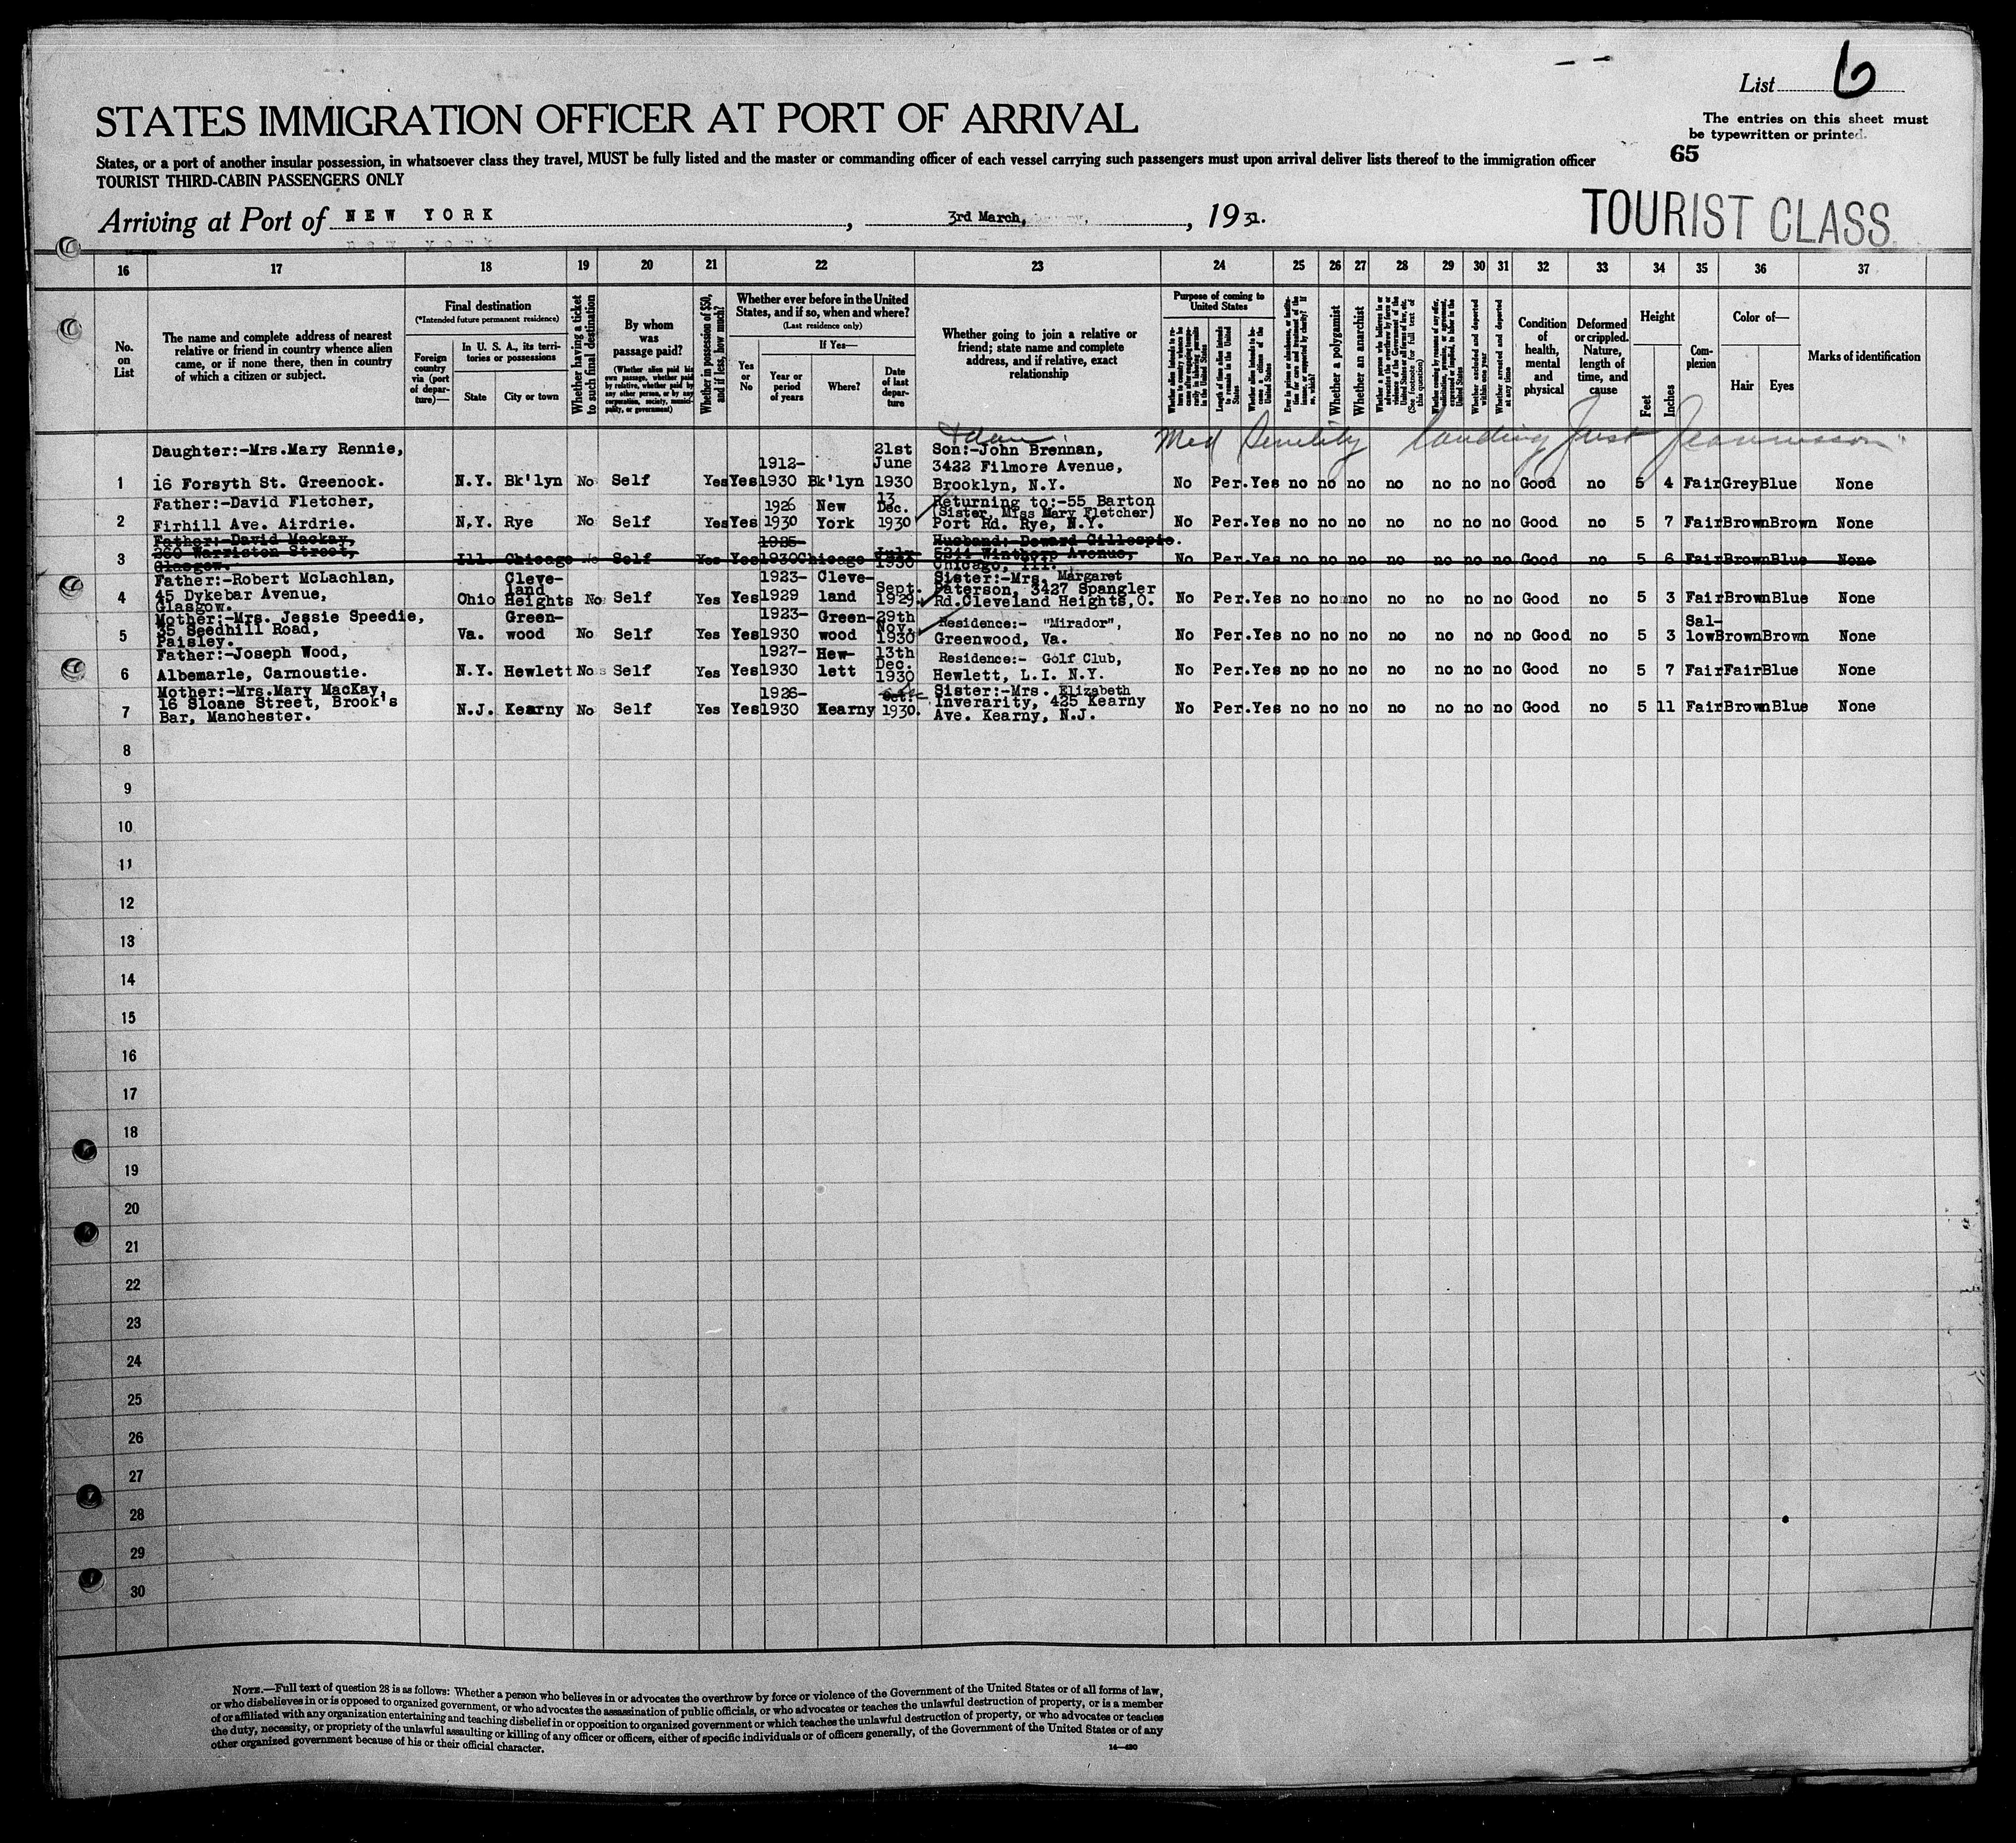 List 6
STATES IMMIGRATION OFFICER AT PORT OF ARRIVAL
The entries on this sheet must
be typewritten or printed.
65
States, or a port of another insular possession, in whatsoever class they travel, MUST be fully listed and the master or commanding officer of each vessel carrying such passengers must upon arrival deliver lists thereof to the immigration officer
TOURIST THIRD-CABIN PASSENGERS ONLY
Arriving at Port of NEW YORK, 3rd March, 1931.
TOURIST CLASS
16 17 18 19 20 21 22 23 24 25 26 27 28 29 30 31 32 33 34 35 36 37
No. on List
The name and complete address of nearest
relative or friend in country whence alien
came, or if none there, then in country
of which a citizen or subject.
Final destination
(*Intended future permanent residence)
Foreign country via (port of departure)—
In U. S. A., its territories or possessions
State
City or town
Whether having a ticket to such final destination
By whom was passage paid?
(Whether alien paid his own passage, whether paid by relative, whether paid by any other person, or by any corporation, society, municipality, or government)
Whether in possession of $50, and if less, how much?
Whether ever before in the United
States, and if so, when and where?
(Last residence only)
Yes or No
If Yes—
Year or period of years
Where?
Date of last departure
Whether going to join a relative or
friend; state name and complete
address, and if relative, exact
relationship
Purpose of coming to United States
Whether alien intends to return to country whence he came after engaging temporarily in laboring pursuits in the United States
Length of time alien intends to remain in the United States
Whether alien intends to become a citizen of the United States
Ever in prison or almshouse, or institution for care and treatment of the insane, or supported by charity? If so, which?
Whether a polygamist
Whether an anarchist
(See footnote for full text of this question)
Whether excluded and deported within one year
Whether arrested and deported at any time
Condition of health, mental and physical
Deformed or crippled. Nature, length of time, and cause
Height
Feet
Inches
Complexion
Color of—
Hair
Eyes
Marks of identification
Med Senility
Daughter:-Mrs.Mary Rennie, 21st Son:-John Brennan,
1912- June 3422 Filmore Avenue,
1 16 Forsyth St. Greenock. N.Y. Bk'lyn No Self Yes Yes 1930 Bk'lyn 1930 Brooklyn, N.Y. No Per. Yes no no no no no no no Good no 5 4 Fair Grey Blue None
Father:-David Fletcher, 1926 New 13 Dec. Returning to:-55 Barton
(Sister, Miss Mary Fletcher)
2 Firhill Ave. Airdrie. N.Y. Rye No Self Yes Yes 1930 York 1930 Port Rd. Rye, N.Y. No Per. Yes no no no no no no no Good no 5 7 Fair Brown Brown None
Father:-David Mackay, 1925- Husband:-Deward Gillespie.
260 Warriston Street, July 5211 Winthorp Avenue,
3 Glasgow. Ill. Chicago No Self Yes Yes 1930 Chicago 1930 Chicago, Ill. No Per. Yes no no no no no no no Good no 5 6 Fair Brown Blue None
Father:-Robert McLachlan, Cleve- 1923- Cleve- Sister:-Mrs. Margaret
45 Dykebar Avenue, land Sept. Paterson, 3427 Spangler
4 Glasgow. Ohio Heights No Self Yes Yes 1929 land 1929. Rd.Cleveland Heights,O. No Per. Yes no no no no no no no Good no 5 3 Fair Brown Blue None
Mother:-Mrs. Jessie Speedie, Green- 1923- Green- 29th Residence:- "Mirador",
35 Seedhill Road, Nov. Sal-
5 Paisley. Va. wood No Self Yes Yes 1930 wood 1930 Greenwood, Va. No Per. Yes no no no no no no no Good no 5 3 low Brown Brown None
Father:-Joseph Wood, 1927- Hew- 13th Residence:- Golf Club,
Dec.
6 Albemarle, Carnoustie. N.Y. Hewlett No Self Yes Yes 1930 lett 1930 Hewlett, L.I. N.Y. No Per. Yes no no no no no no no Good no 5 7 Fair Fair Blue None
Mother:-Mrs.Mary MacKay, 1926- Oct. Sister:-Mrs. Elizabeth
16 Sloane Street, Brook's Inverarity, 425 Kearny
7 Bar, Manchester. N.J. Kearny No Self Yes Yes 1930 Kearny 1930. Ave. Kearny, N.J. No Per. Yes no no no no no no no Good no 5 11 Fair Brown Blue None
8
9
10
11
12
13
14
15
16
17
18
19
20
21
22
23
24
25
26
27
28
29
30
NOTE.—Full text of question 28 is as follows: Whether a person who believes in or advocates the overthrow by force or violence of the Government of the United States or of all forms of law,
or who disbelieves in or is opposed to organized government, or who advocates the assassination of public officials, or who advocates or teaches the unlawful destruction of property, or is a member
of or affiliated with any organization entertaining and teaching disbelief in or opposition to organized government or which teaches the unlawful destruction of property, or who advocates or teaches
the duty, necessity, or propriety of the unlawful assaulting or killing of any officer or officers, either of specific individuals or of officers generally, of the Government of the United States or of any
other organized government because of his or their official character.
14—430